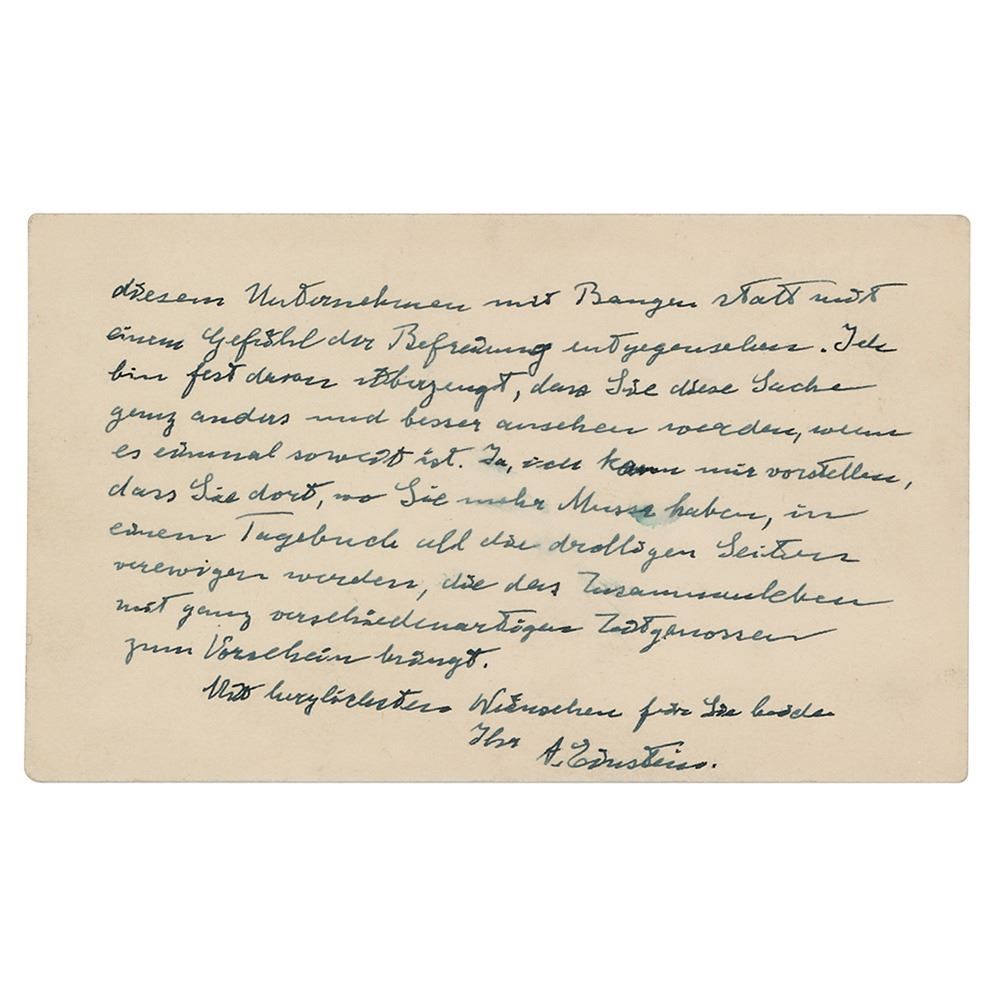 diesem Unternehmen mit Bangen statt mit
einem Gefühl der Befreiung entgegensehen. Ich
bin fest davon überzeugt, dass Sie diese Sache
ganz anders und besser ansehen werden, wenn
es einmal soweit ist. Ja, ich kann mir vorstellen,
dass Sie dort, wo Sie mehr Musse haben, in
einem Tagebuch all die drolligen Seiten
verewigen werden, die das Zusammenleben
mit ganz verschiedenartigen Zeitgenossen
zum Vorschein bringt.
Mit herzlichsten Wünschen für Sie beide
Ihr A. Einstein.